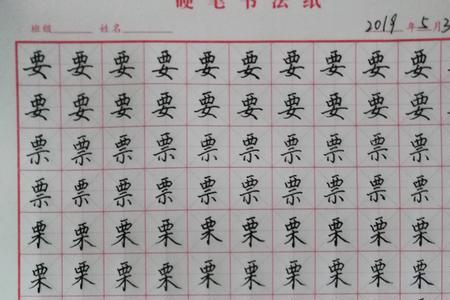 硬笔书法纸
班级 姓名 2019年5月3
要要要要要要要要要要
要要要要要要要要要要
票票票票票票票票票票
票票票票票票票票票票
栗栗栗栗栗栗栗栗栗栗
栗栗栗栗栗栗栗栗栗栗